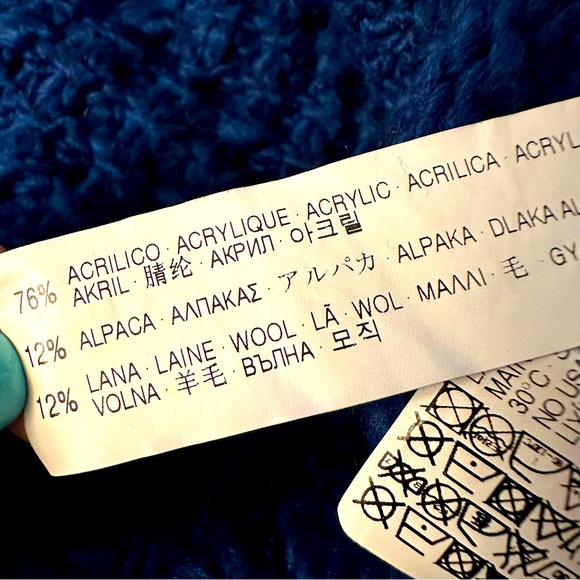 76% ACRILICO · ACRYLIQUE · ACRYLIC · ACRILICA · ACRYL
AKRIL · 腈纶 · АКРИЛ · 아크릴
12% ALPACA · ΑΛΠΑΚΑΣ · アルパカ · ALPAKA · DLAKA AL
12% LANA · LAINE · WOOL · LÃ · WOL · ΜΑΛΛΙ · 毛 · GY
VOLNA · 羊毛 · ВЪЛНА · 모직
30°C
NO US